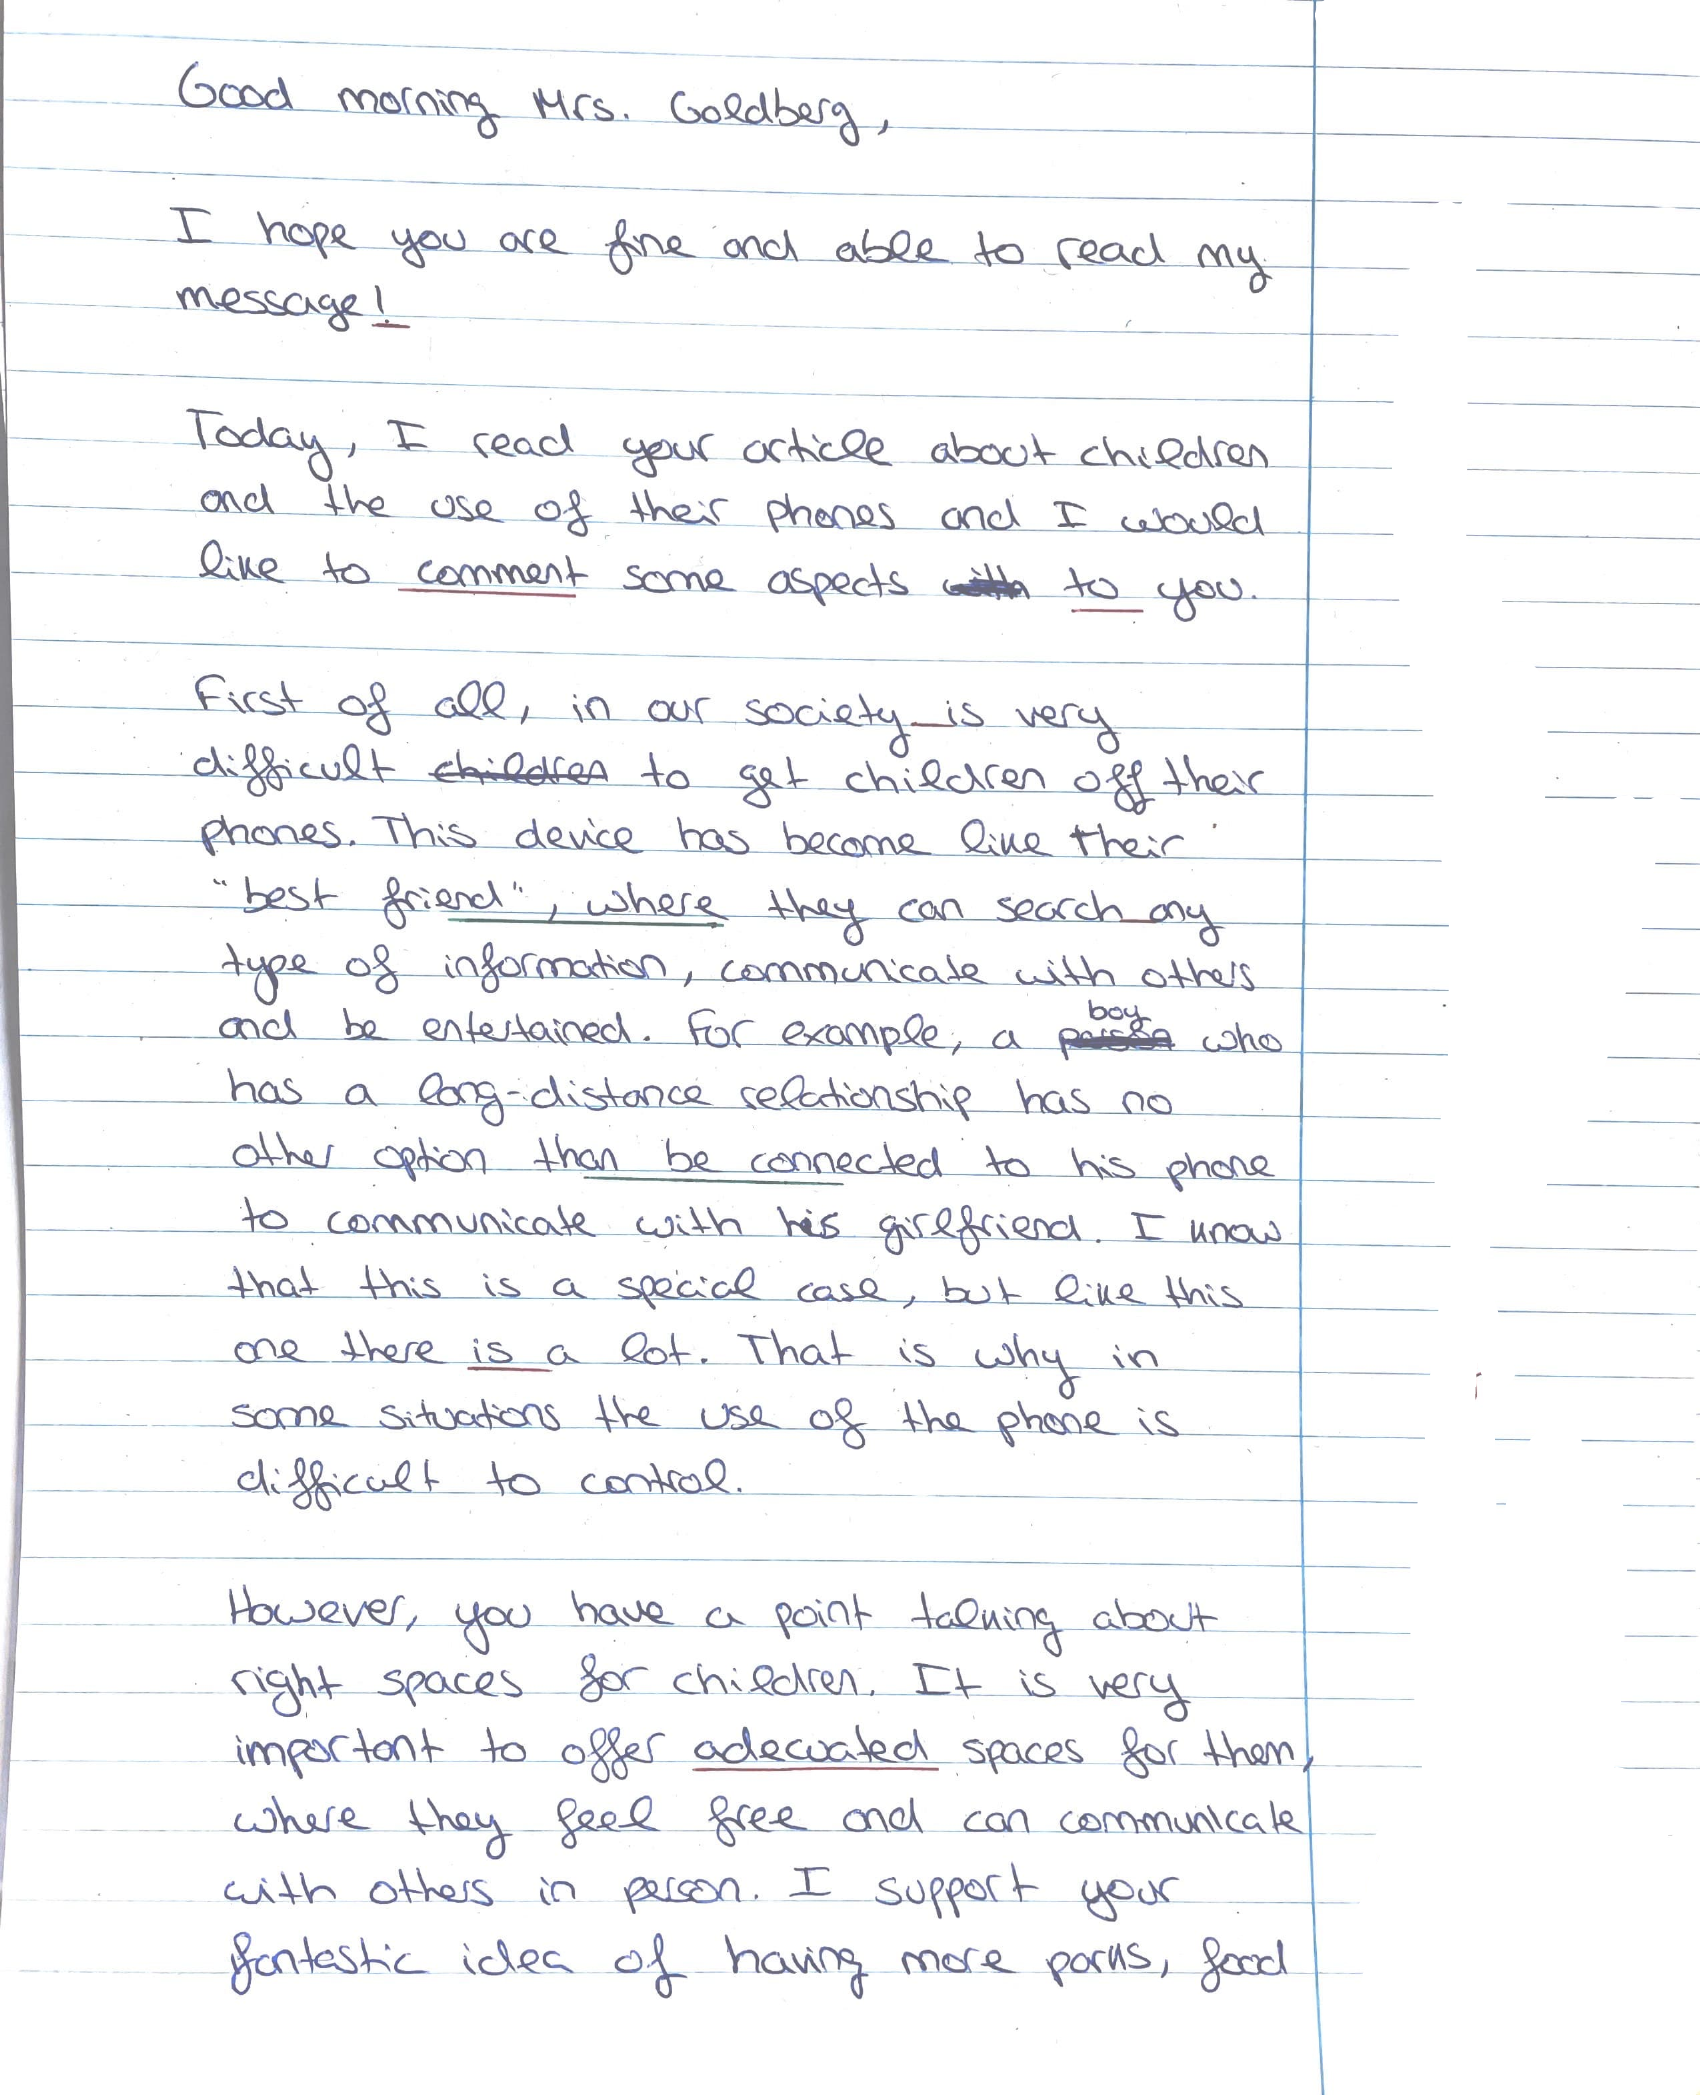 Good morning Mrs. Goldberg,
I hope you are fine and able to read my
message!
Today, I read your article about children
and the use of their phones and I would
like to comment some aspects with to you.
First of all, in our society is very
difficult children to get children off their
phones. This device has become like their
"best friend", where they can search any
type of information, communicate with others
and be entertained. For example, a boy who
has a long-distance relationship has no
other option than be connected to his phone
to communicate with his girlfriend. I know
that this is a special case, but like this
one there is a lot. That is why in
some situations the use of the phone is
difficult to control.
However, you have a point talking about
right spaces for children. It is very
important to offer adecuated spaces for them,
where they feel free and can communicate
with others in person. I support your
fantastic idea of having more parks, food